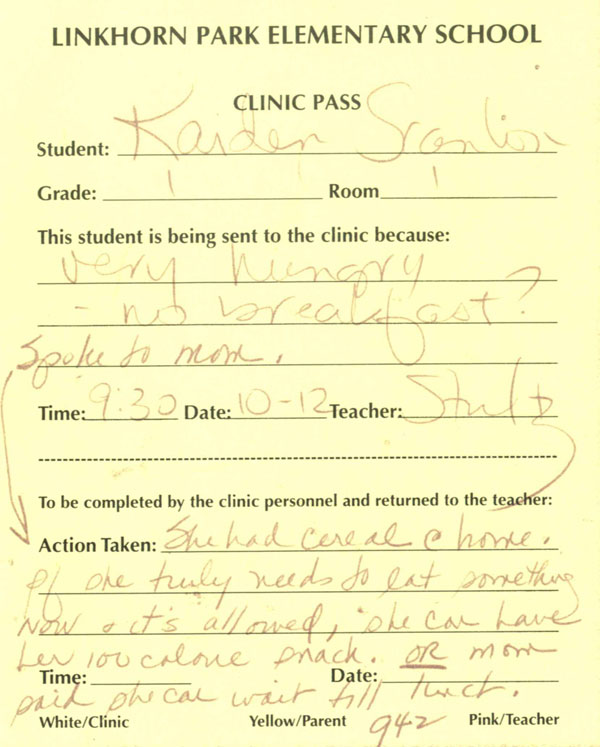 LINKHORN PARK ELEMENTARY SCHOOL
CLINIC PASS
Student: Kaiden Scanlion
Grade: 1 Room 1
This student is being sent to the clinic because:
very hungry
- no breakfast?
Spoke to mom.
Time: 9:30 Date: 10-12 Teacher: Stultz
To be completed by the clinic personnel and returned to the teacher:
Action Taken: She had cereal @ home.
If she truly needs to eat something
now & it's allowed, she can have
her 100 calorie snack. OR mom
Time: Date:
said she can wait till lunch.
White/Clinic Yellow/Parent 942 Pink/Teacher